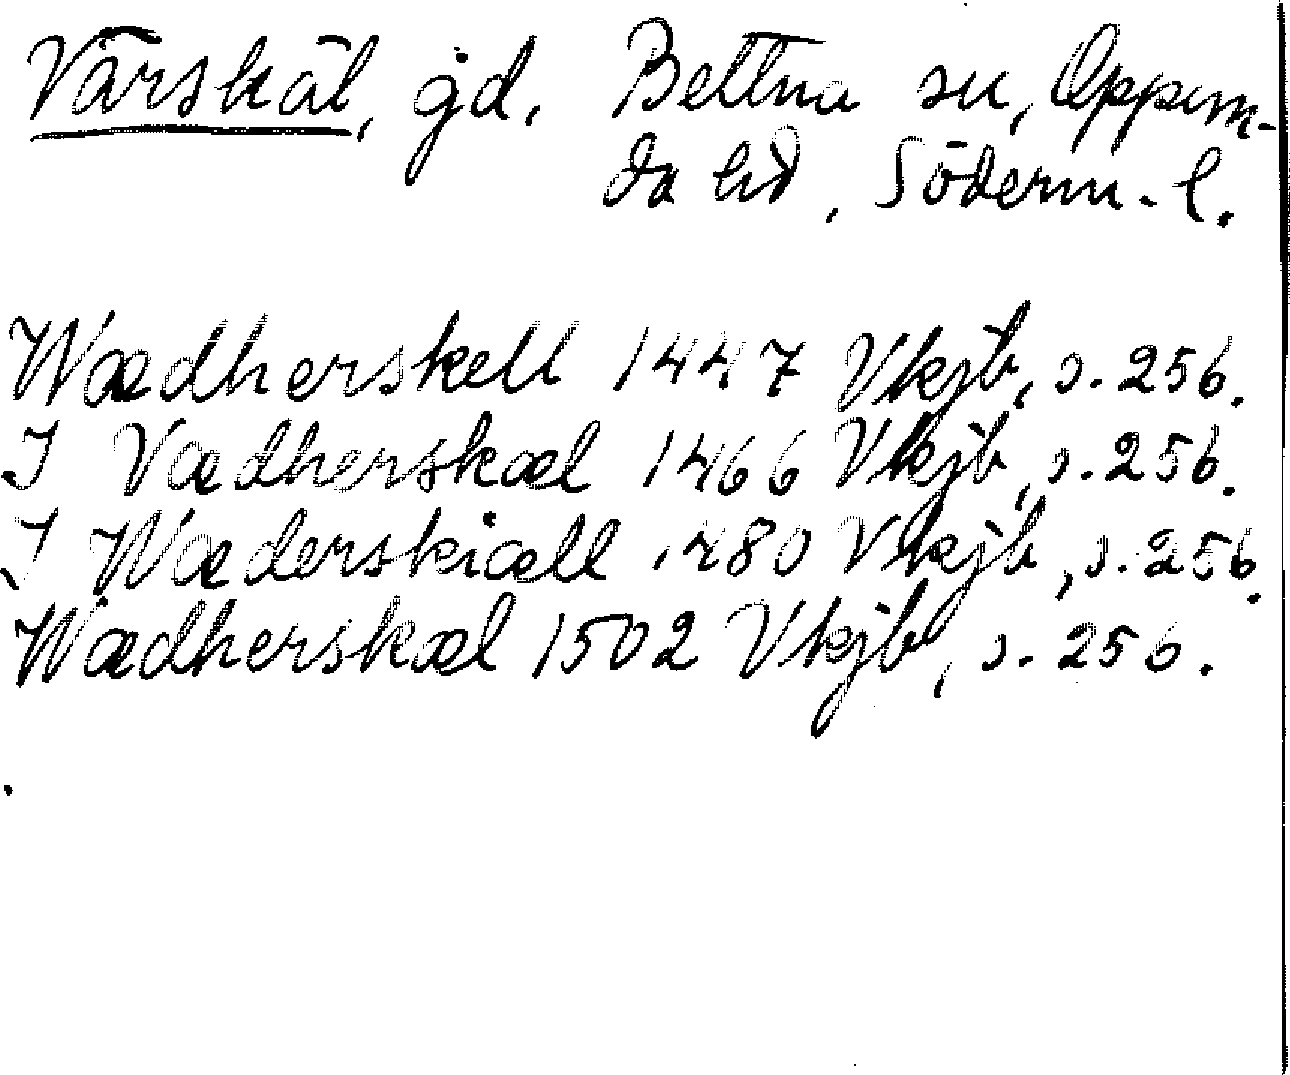 Värskäl, gd. Bettna sn, Oppun-
da hd, Söderm. l.
Wædherskell 1447 Vkjb, s. 256.
I Vædherskæl 1466 Vkjb, s. 256.
I Wæderskiæll 1480 Vkjb, s. 256.
Wædherskæl 1502 Vkjb, s. 256.